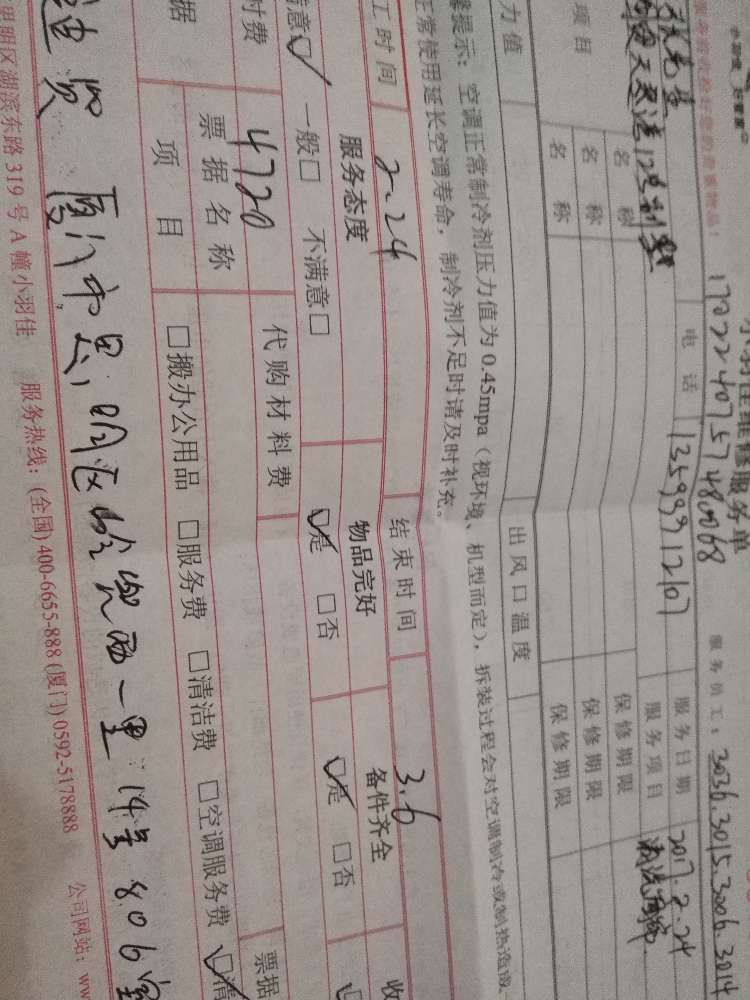 小羽佳维修服务单
17022407 57480068
服务员工：3036.3015.3006.3014
先生
电话 13599912107
服务日期 2017.2.24
项目
服务项目
名称
保修期限
名称
保修期限
名称
保修期限
力值
出风口温度
提示：空调正常制冷剂压力值为0.45mpa（视环境、机型而定），拆装过程会对空调制冷或制热造成
正常使用延长空调寿命，制冷剂不足时请及时补充。
工时间 2.24 结束时间 3.6
服务态度 物品完好 备件齐全 收
满意□✓ 一般□ 不满意□ □✓是 □否 □✓是 □否
时费 4720 代购材料费
据 票据名称 票据
项目 □搬办公用品 □服务费 □清洁费 □空调服务费 □✓清
厦门市思明区 西一里14号806室
思明区湖滨东路319号A幢小羽佳 服务热线：(全国) 400-6655-888 (厦门) 0592-5178888 公司网站：ww